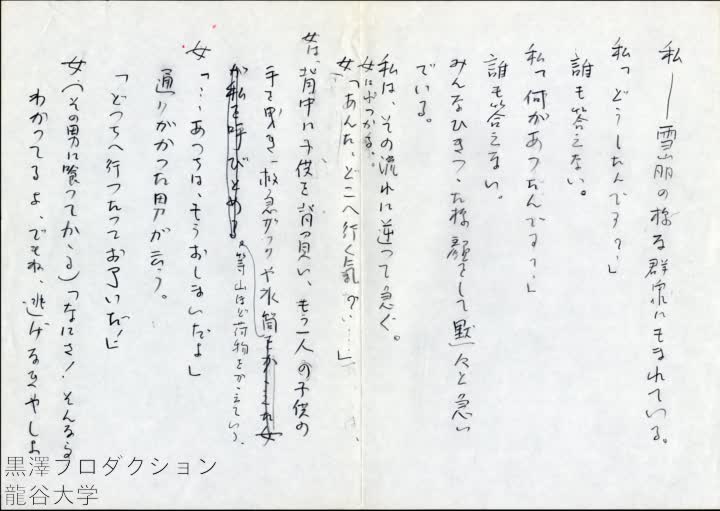 私──雪崩の様な群衆にもまれている。
私「どうしたんです?」
誰も答えない。
私「何があったんです?」
誰も答えない。
みんなひきつった様な顔をして黙々と急い
でいる。
私は、その流れに逆って急ぐ。
女にぶつかる。
女「あんた、どこへ行く気かい……」
女は、背中に子供を背負い、もう一人の子供の
手を曳き、救急バックや水筒をかゝえ女
が私を呼びとめる。
等山ほど荷物をかゝえている、
女「……あっちは、もうおしまいだよ」
通りがかった男が云う。
「どっちへ行ったってお了いだ!」
女(その男に喰ってかゝる)「なにさ!そんなこと
わかってるよ、でもね、逃げなきやしよ
黒澤プロダクション
龍谷大学